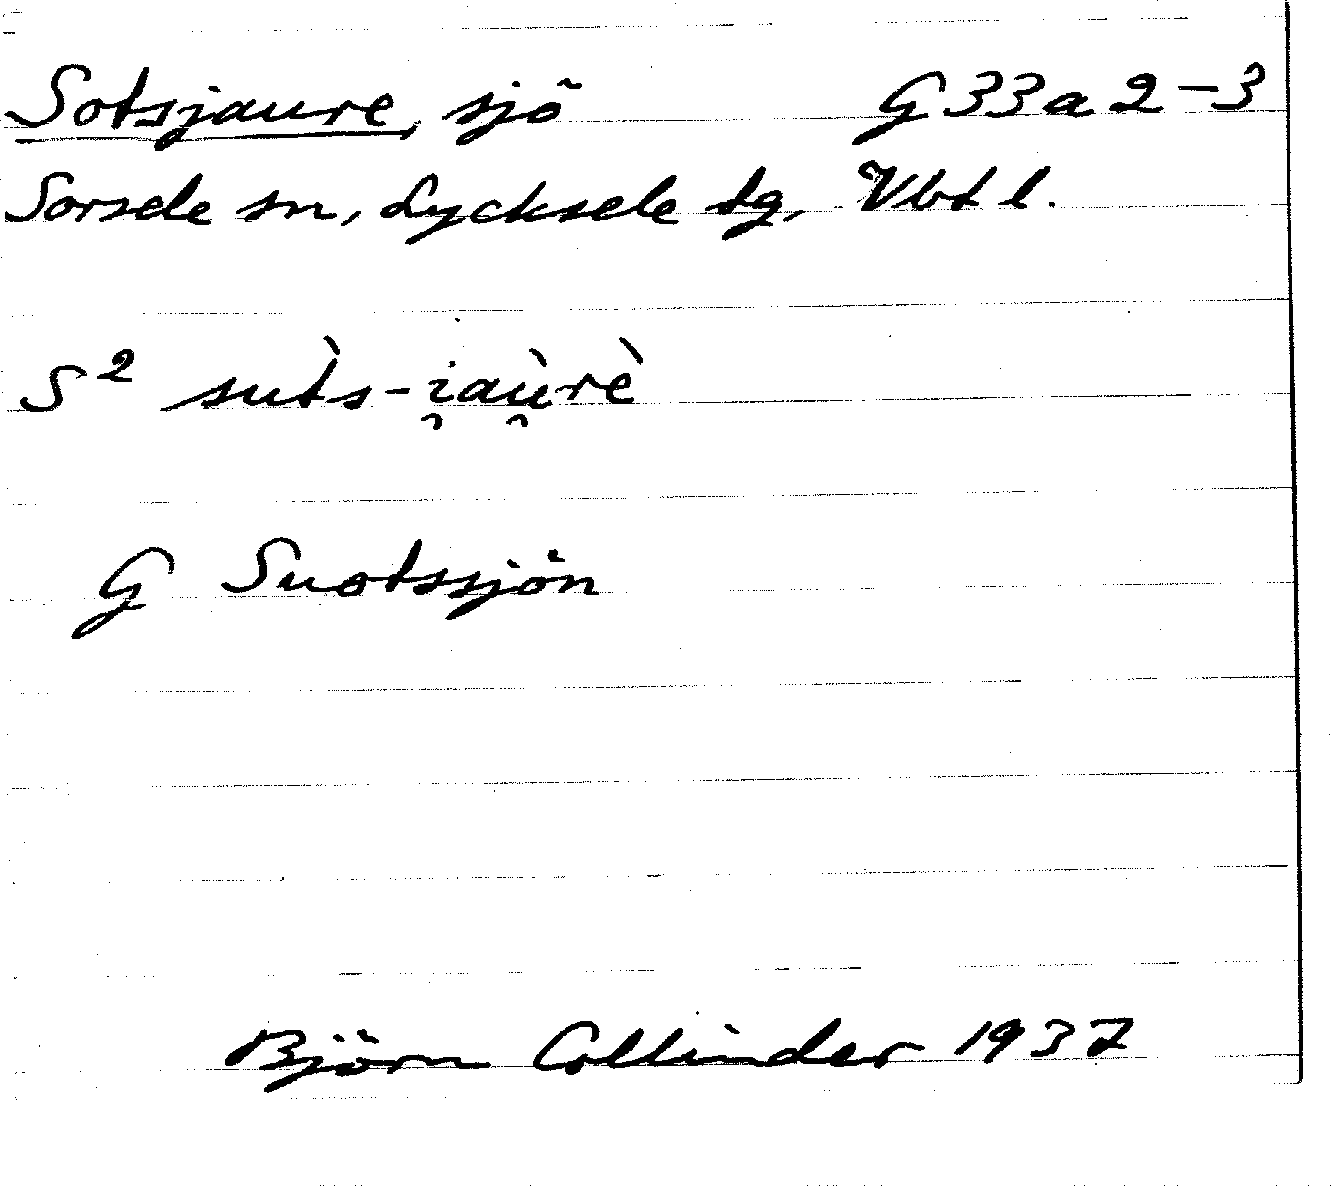 Sotsjaure, sjö G33a2-3
Sorsele sn, Lycksele tg, Vbt l.
S² sut̀s-i̯aù̯rè
G Suotssjön
Björn Collinder 1937